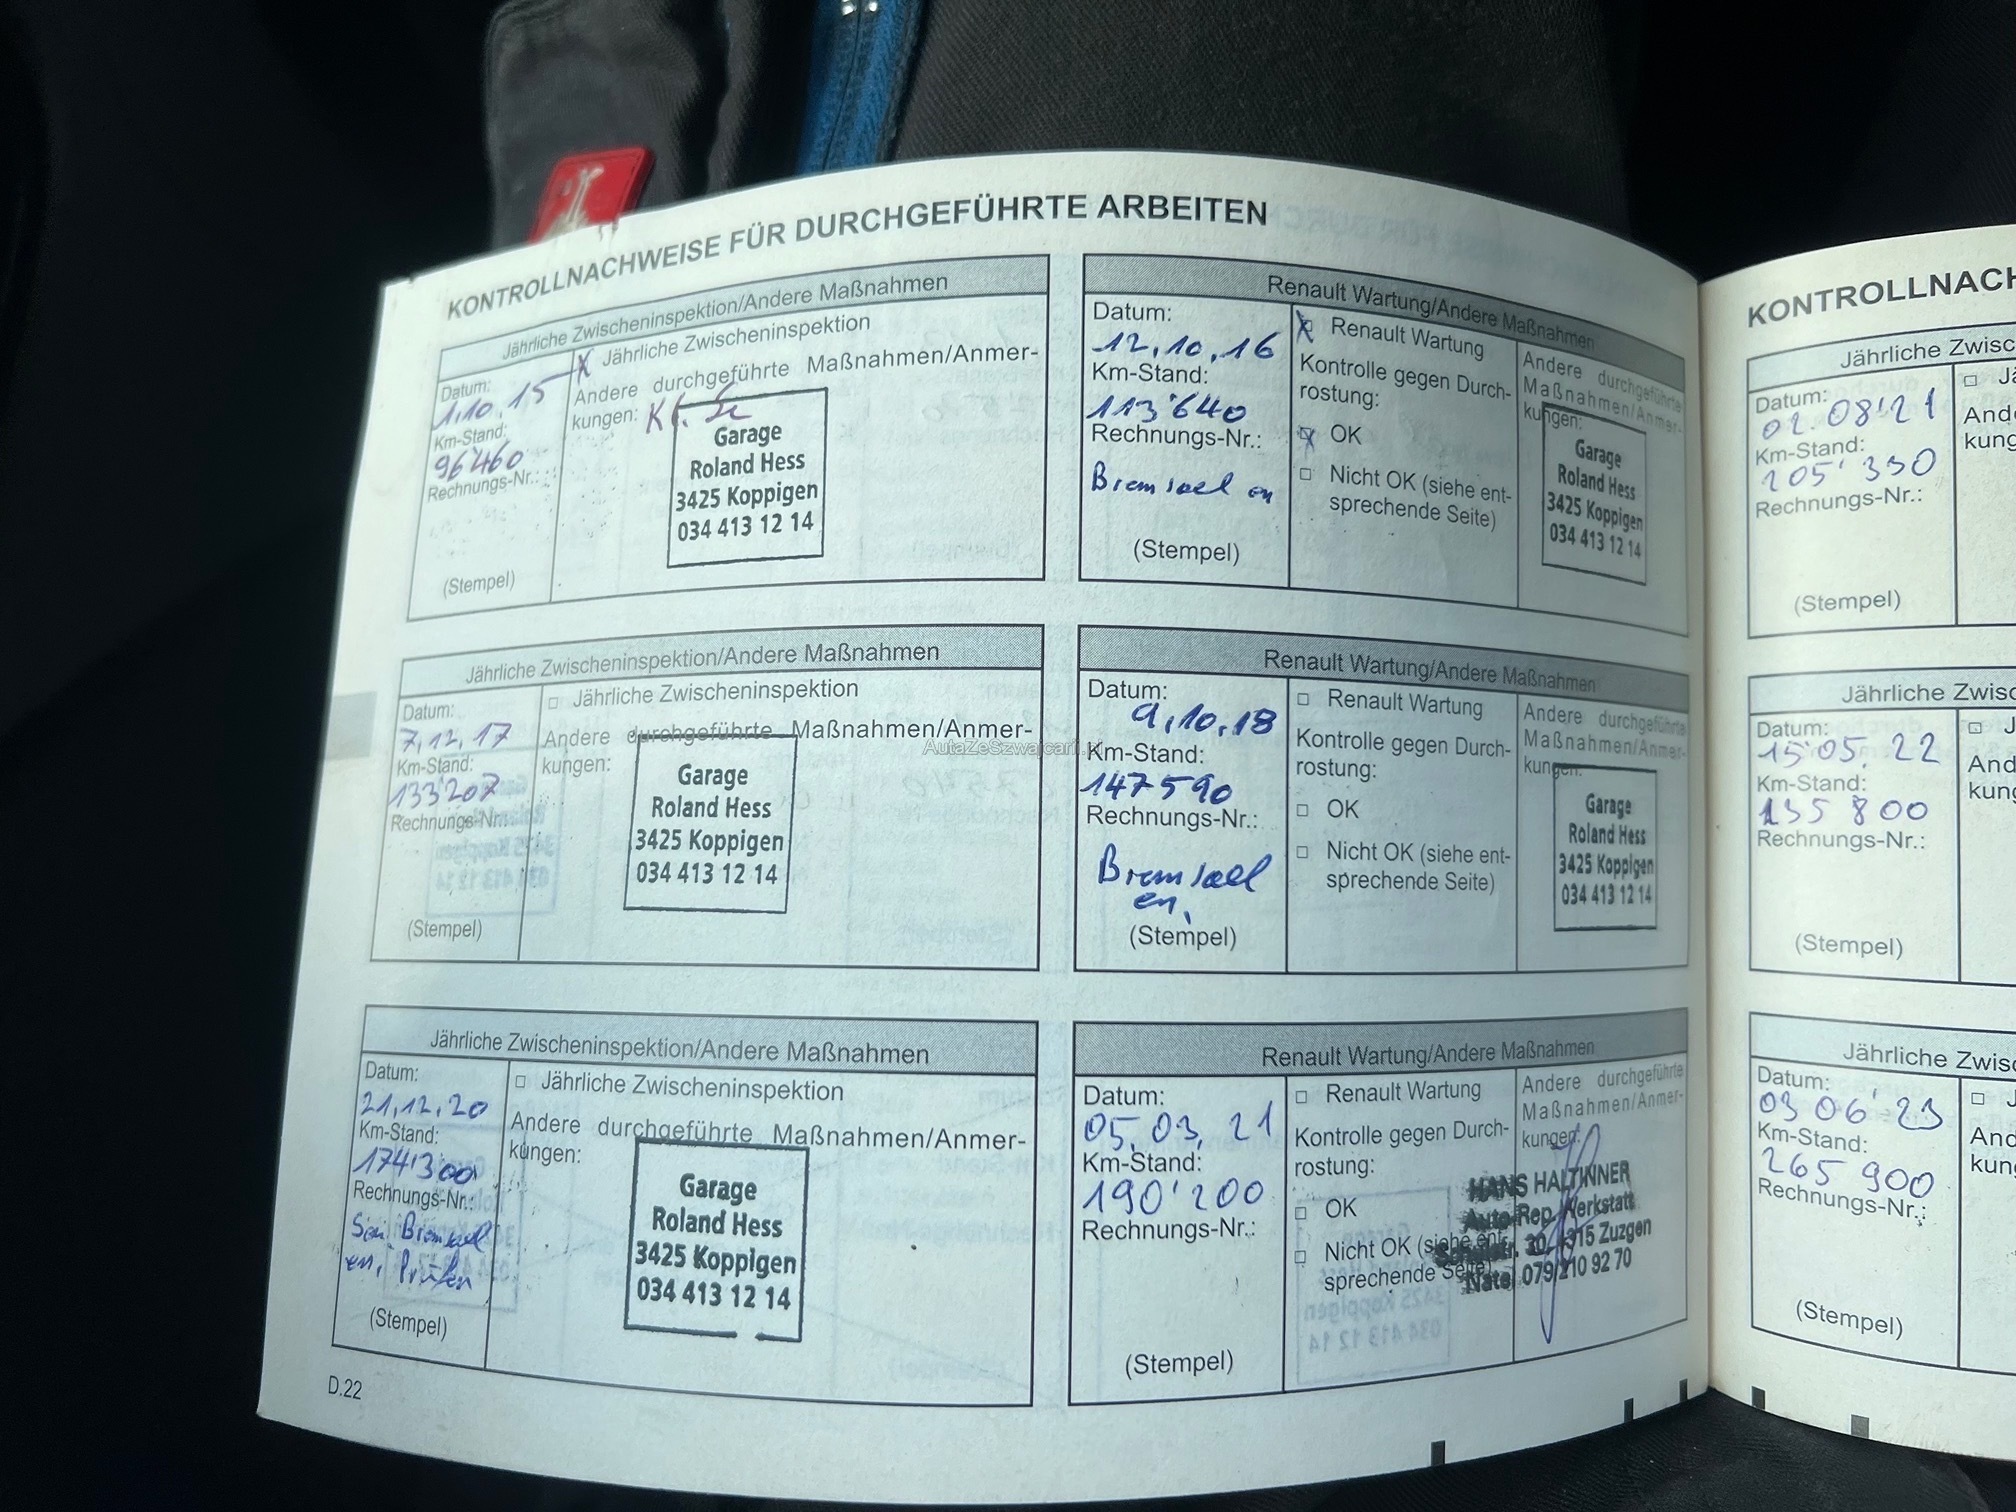 KONTROLLNACHWEISE FÜR DURCHGEFÜHRTE ARBEITEN
Jährliche Zwischeninspektion/Andere Maßnahmen
Datum:
1.10.15
Km-Stand:
96'460
Rechnungs-Nr.:
(Stempel)
X Jährliche Zwischeninspektion
Andere durchgeführte Maßnahmen/Anmer-
kungen:
Garage
Roland Hess
3425 Koppigen
034 413 12 14
Renault Wartung/Andere Maßnahmen
Datum:
12.10.16
Km-Stand:
113'640
Rechnungs-Nr.:
(Stempel)
X Renault Wartung
Kontrolle gegen Durch-
rostung:
X OK
□ Nicht OK (siehe ent-
sprechende Seite)
Andere durchgeführte
Maßnahmen/Anmer-
kungen:
Garage
Roland Hess
3425 Koppigen
034 413 12 14
Jährliche Zwischeninspektion/Andere Maßnahmen
Datum:
7.12.17
Km-Stand:
133'207
Rechnungs-Nr.:
(Stempel)
□ Jährliche Zwischeninspektion
Andere durchgeführte Maßnahmen/Anmer-
kungen:
Garage
Roland Hess
3425 Koppigen
034 413 12 14
AutaZeSzwajcarii.pl
Renault Wartung/Andere Maßnahmen
Datum:
9.10.18
Km-Stand:
147590
Rechnungs-Nr.:
(Stempel)
□ Renault Wartung
Kontrolle gegen Durch-
rostung:
□ OK
□ Nicht OK (siehe ent-
sprechende Seite)
Andere durchgeführte
Maßnahmen/Anmer-
kungen:
Garage
Roland Hess
3425 Koppigen
034 413 12 14
Jährliche Zwischeninspektion/Andere Maßnahmen
Datum:
21.12.20
Km-Stand:
174'300
Rechnungs-Nr.:
Prüfen
(Stempel)
□ Jährliche Zwischeninspektion
Andere durchgeführte Maßnahmen/Anmer-
kungen:
Garage
Roland Hess
3425 Koppigen
034 413 12 14
Renault Wartung/Andere Maßnahmen
Datum:
05.03.21
Km-Stand:
190'200
Rechnungs-Nr.:
(Stempel)
□ Renault Wartung
Kontrolle gegen Durch-
rostung:
□ OK
□ Nicht OK (siehe ent-
sprechende Seite)
Andere durchgeführte
Maßnahmen/Anmer-
kungen:
HANS HALTINNER
Auto-Rep. Werkstatt
30, 4315 Zuzgen
Natel 079/210 92 70
D.22
KONTROLLNACH
Jährliche Zwisc
Datum:
02.08'21
Km-Stand:
205'330
Rechnungs-Nr.:
(Stempel)
□ Jä
Ande
kung
Jährliche Zwisc
Datum:
15.05.22
Km-Stand:
235 800
Rechnungs-Nr.:
(Stempel)
□ J
And
kun
Jährliche Zwisc
Datum:
03 06'23
Km-Stand:
265 900
Rechnungs-Nr.:
(Stempel)
□ J
And
kun